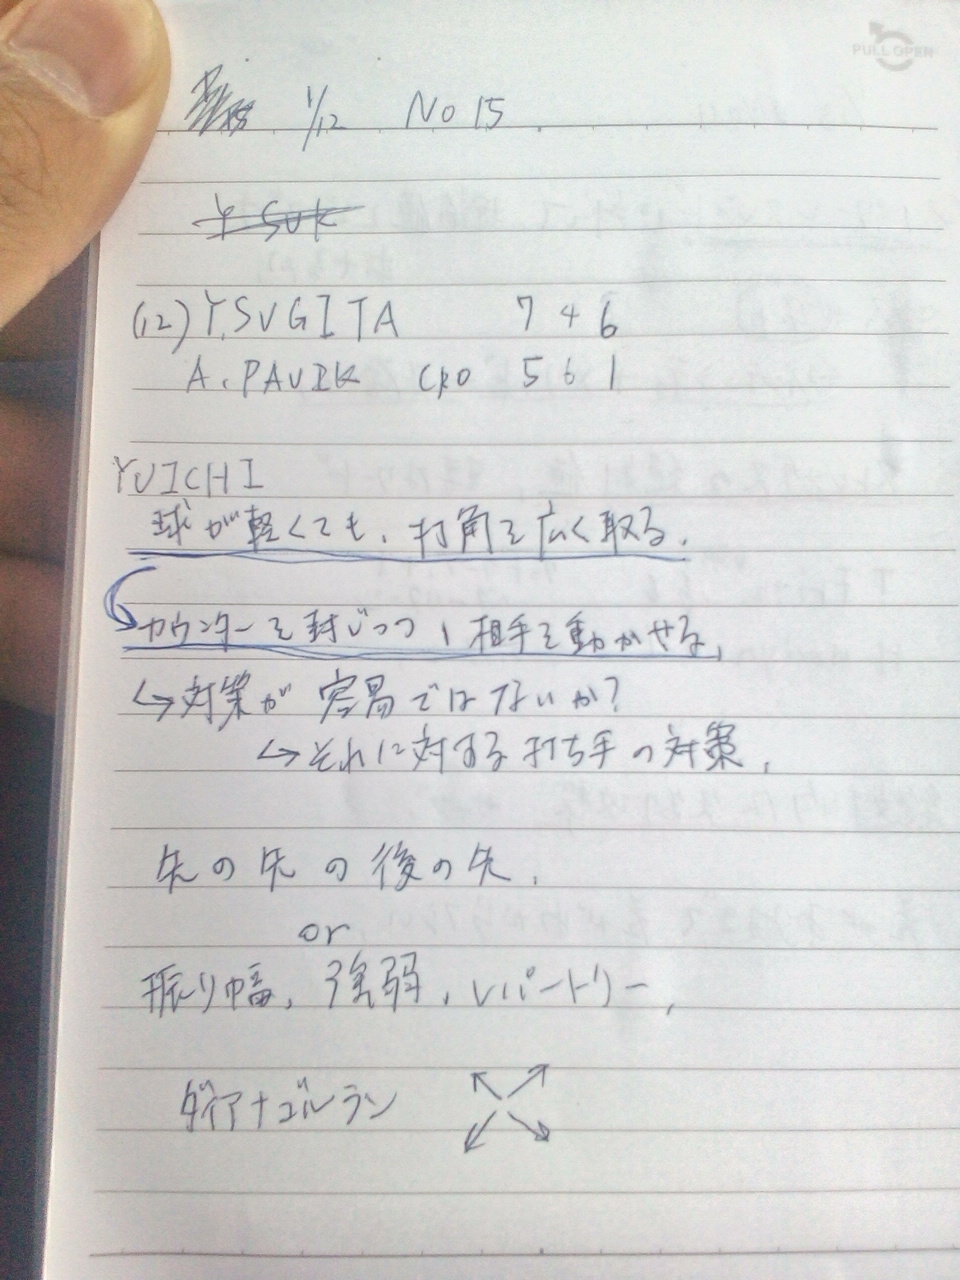 PULL OPEN
1/12 No 15
Y SUK
(12) Y. SUGITA 7 4 6
A. PAVIK CRO 5 6 1
YUICHI
球が軽くても、打角を広く取る。
カウンターを封じつつ、相手を動かせる。
↳対策が容易ではないか?
↳それに対する打ち手の対策。
先の先の後の先。
or
振り幅、強弱、レパートリー、
ダイアナゴルラン